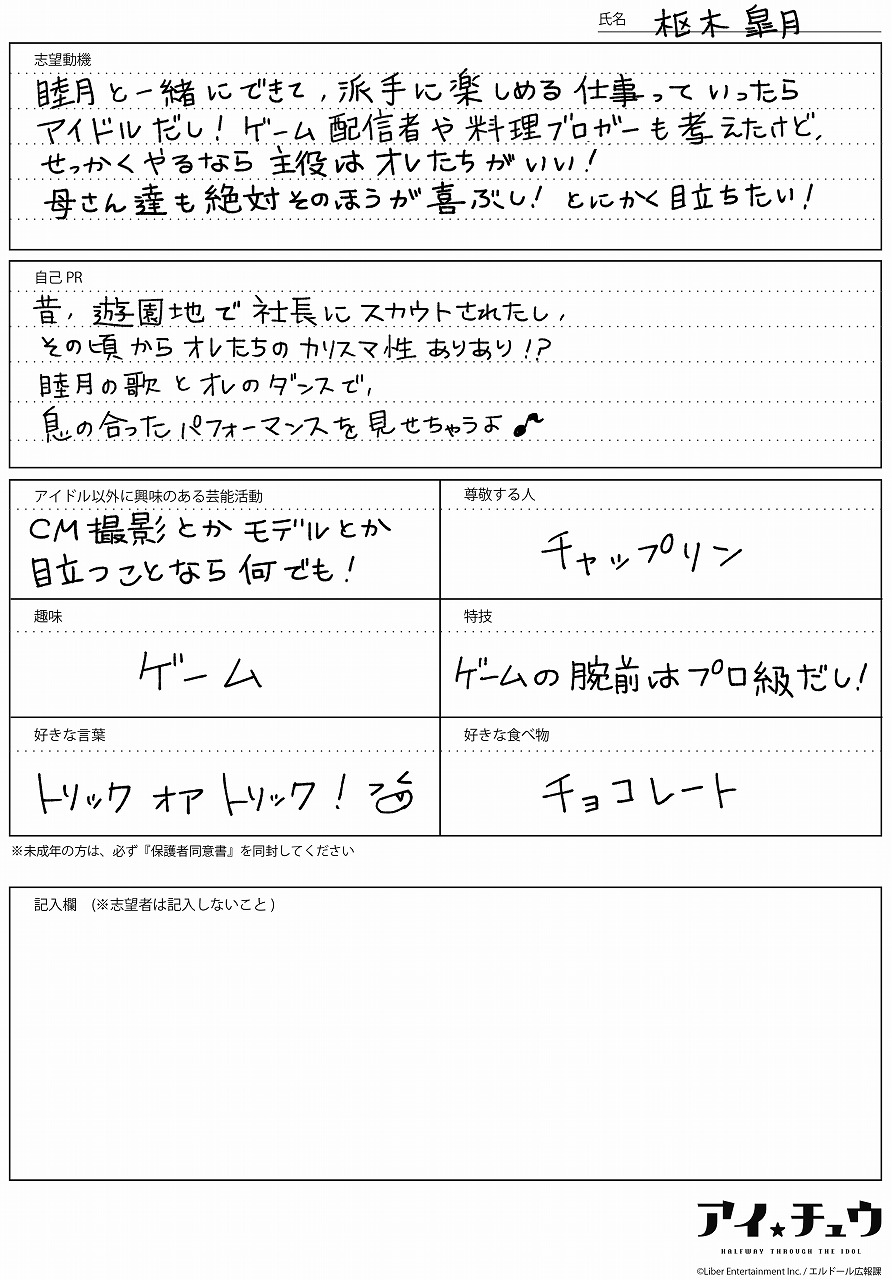 氏名 枢木 皐月
志望動機
睦月と一緒にできて、派手に楽しめる仕事っていったら
アイドルだし!ゲーム配信者や料理ブロガーも考えたけど、
せっかくやるなら主役はオレたちがいい!
母さん達も絶対そのほうが喜ぶし!とにかく目立ちたい!
自己PR
昔、遊園地で社長にスカウトされたし、
その頃からオレたちのカリスマ性ありあり!?
睦月の歌とオレのダンスで、
息の合ったパフォーマンスを見せちゃうよ♪
アイドル以外に興味のある芸能活動
CM撮影とかモデルとか
目立つことなら何でも!
尊敬する人
チャップリン
趣味
ゲーム
特技
ゲームの腕前はプロ級だし!
好きな言葉
トリック オア トリック!
好きな食べ物
チョコレート
※未成年の方は、必ず『保護者同意書』を同封してください
記入欄 (※志望者は記入しないこと)
アイ★チュウ
HALFWAY THROUGH THE IDOL
©Liber Entertainment Inc. / エルドール広報課